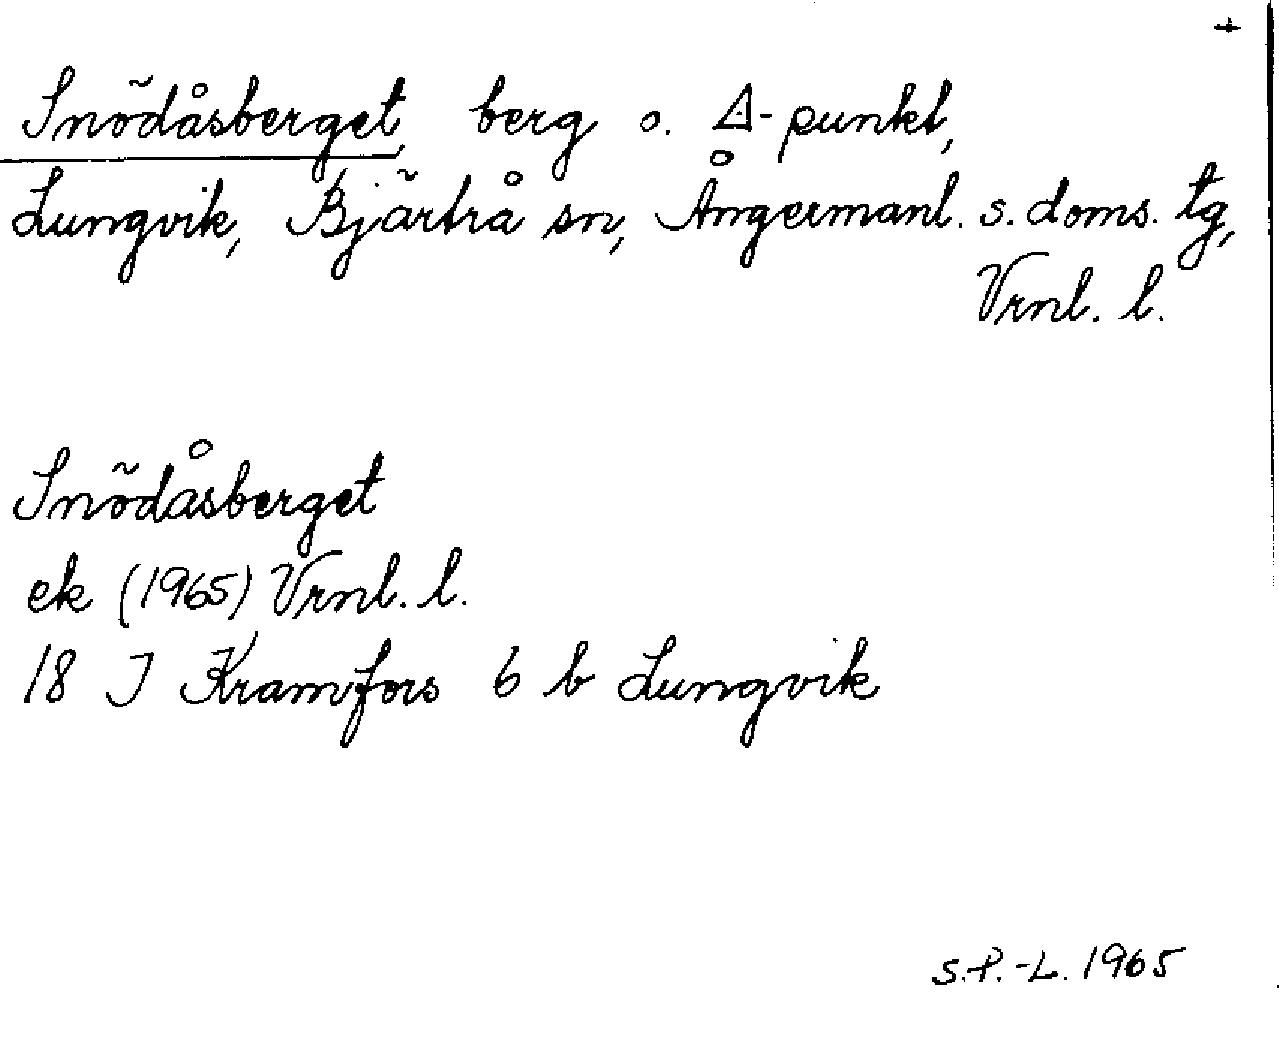 +
Snödåsberget, berg o. Δ-punkt,
Lungvik, Bjärtrå sn, Ångermanl. s. doms. tg,
Vrnl. l.
Snödåsberget
ek (1965) Vrnl. l.
18 J Kramfors 6 b Lungvik
S.P.-L. 1965